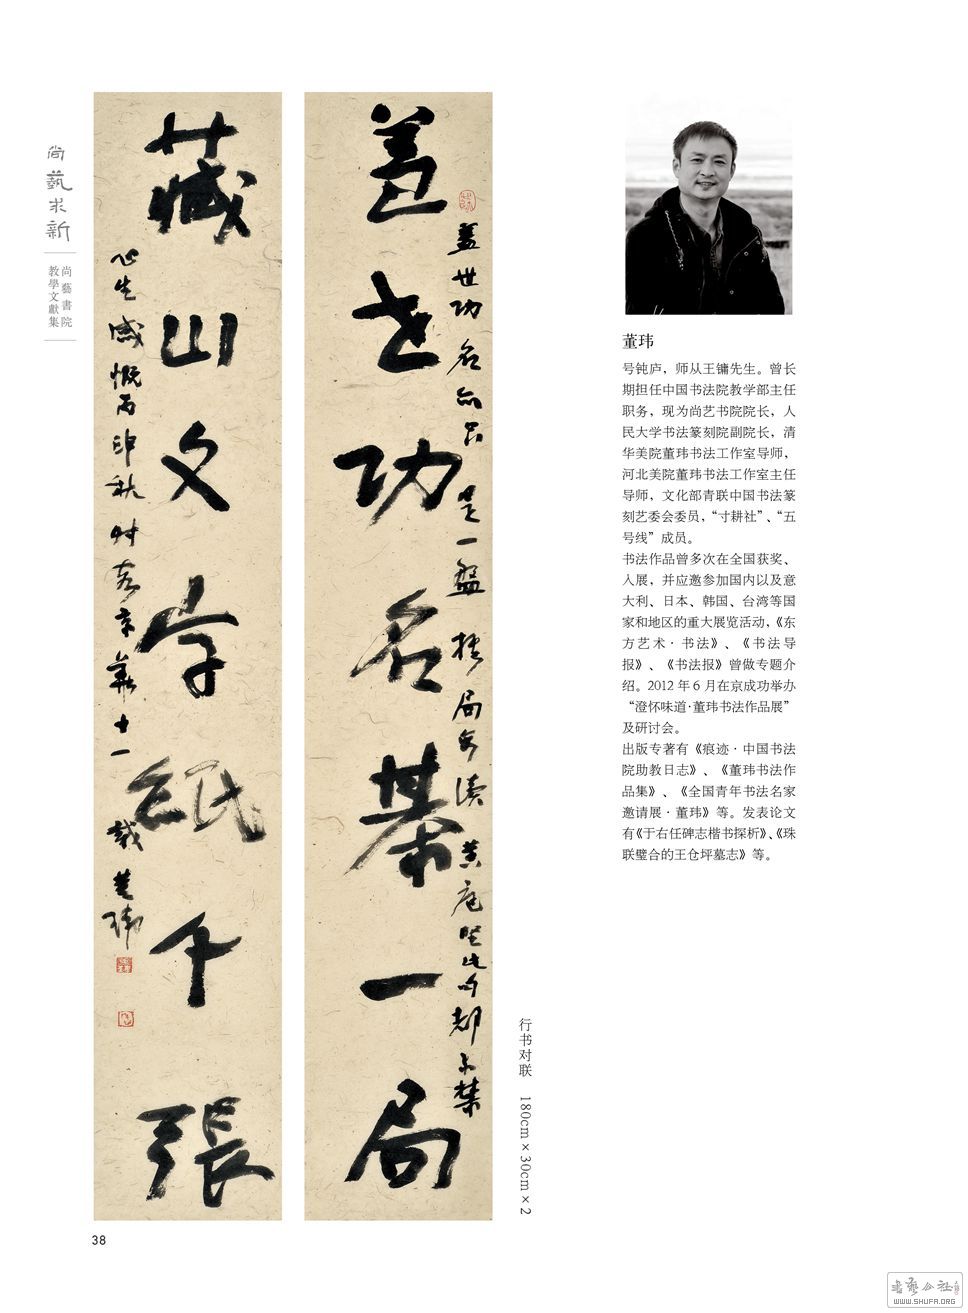 尚藝求新
尚藝書院
教學文獻集
蓋世功名棊一局
藏山文字紙千張
蓋世功名
是一盤
局
黄
此
都
心生感慨丙申秋
時
京華十一
董瑋
行书对联 180cm×30cm×2
董玮
号钝庐，师从王镛先生。曾长
期担任中国书法院教学部主任
职务，现为尚艺书院院长，人
民大学书法篆刻院副院长，清
华美院董玮书法工作室导师，
河北美院董玮书法工作室主任
导师，文化部青联中国书法篆
刻艺委会委员，“寸耕社”、“五
号线”成员。
书法作品曾多次在全国获奖、
入展，并应邀参加国内以及意
大利、日本、韩国、台湾等国
家和地区的重大展览活动，《东
方艺术·书法》、《书法导
报》、《书法报》曾做专题介
绍。2012年6月在京成功举办
“澄怀味道·董玮书法作品展”
及研讨会。
出版专著有《痕迹·中国书法
院助教日志》、《董玮书法作
品集》、《全国青年书法名家
邀请展·董玮》等。发表论文
有《于右任碑志楷书探析》、《珠
联璧合的王仓坪墓志》等。
38
書藝公社
WWW.SHUFA.ORG